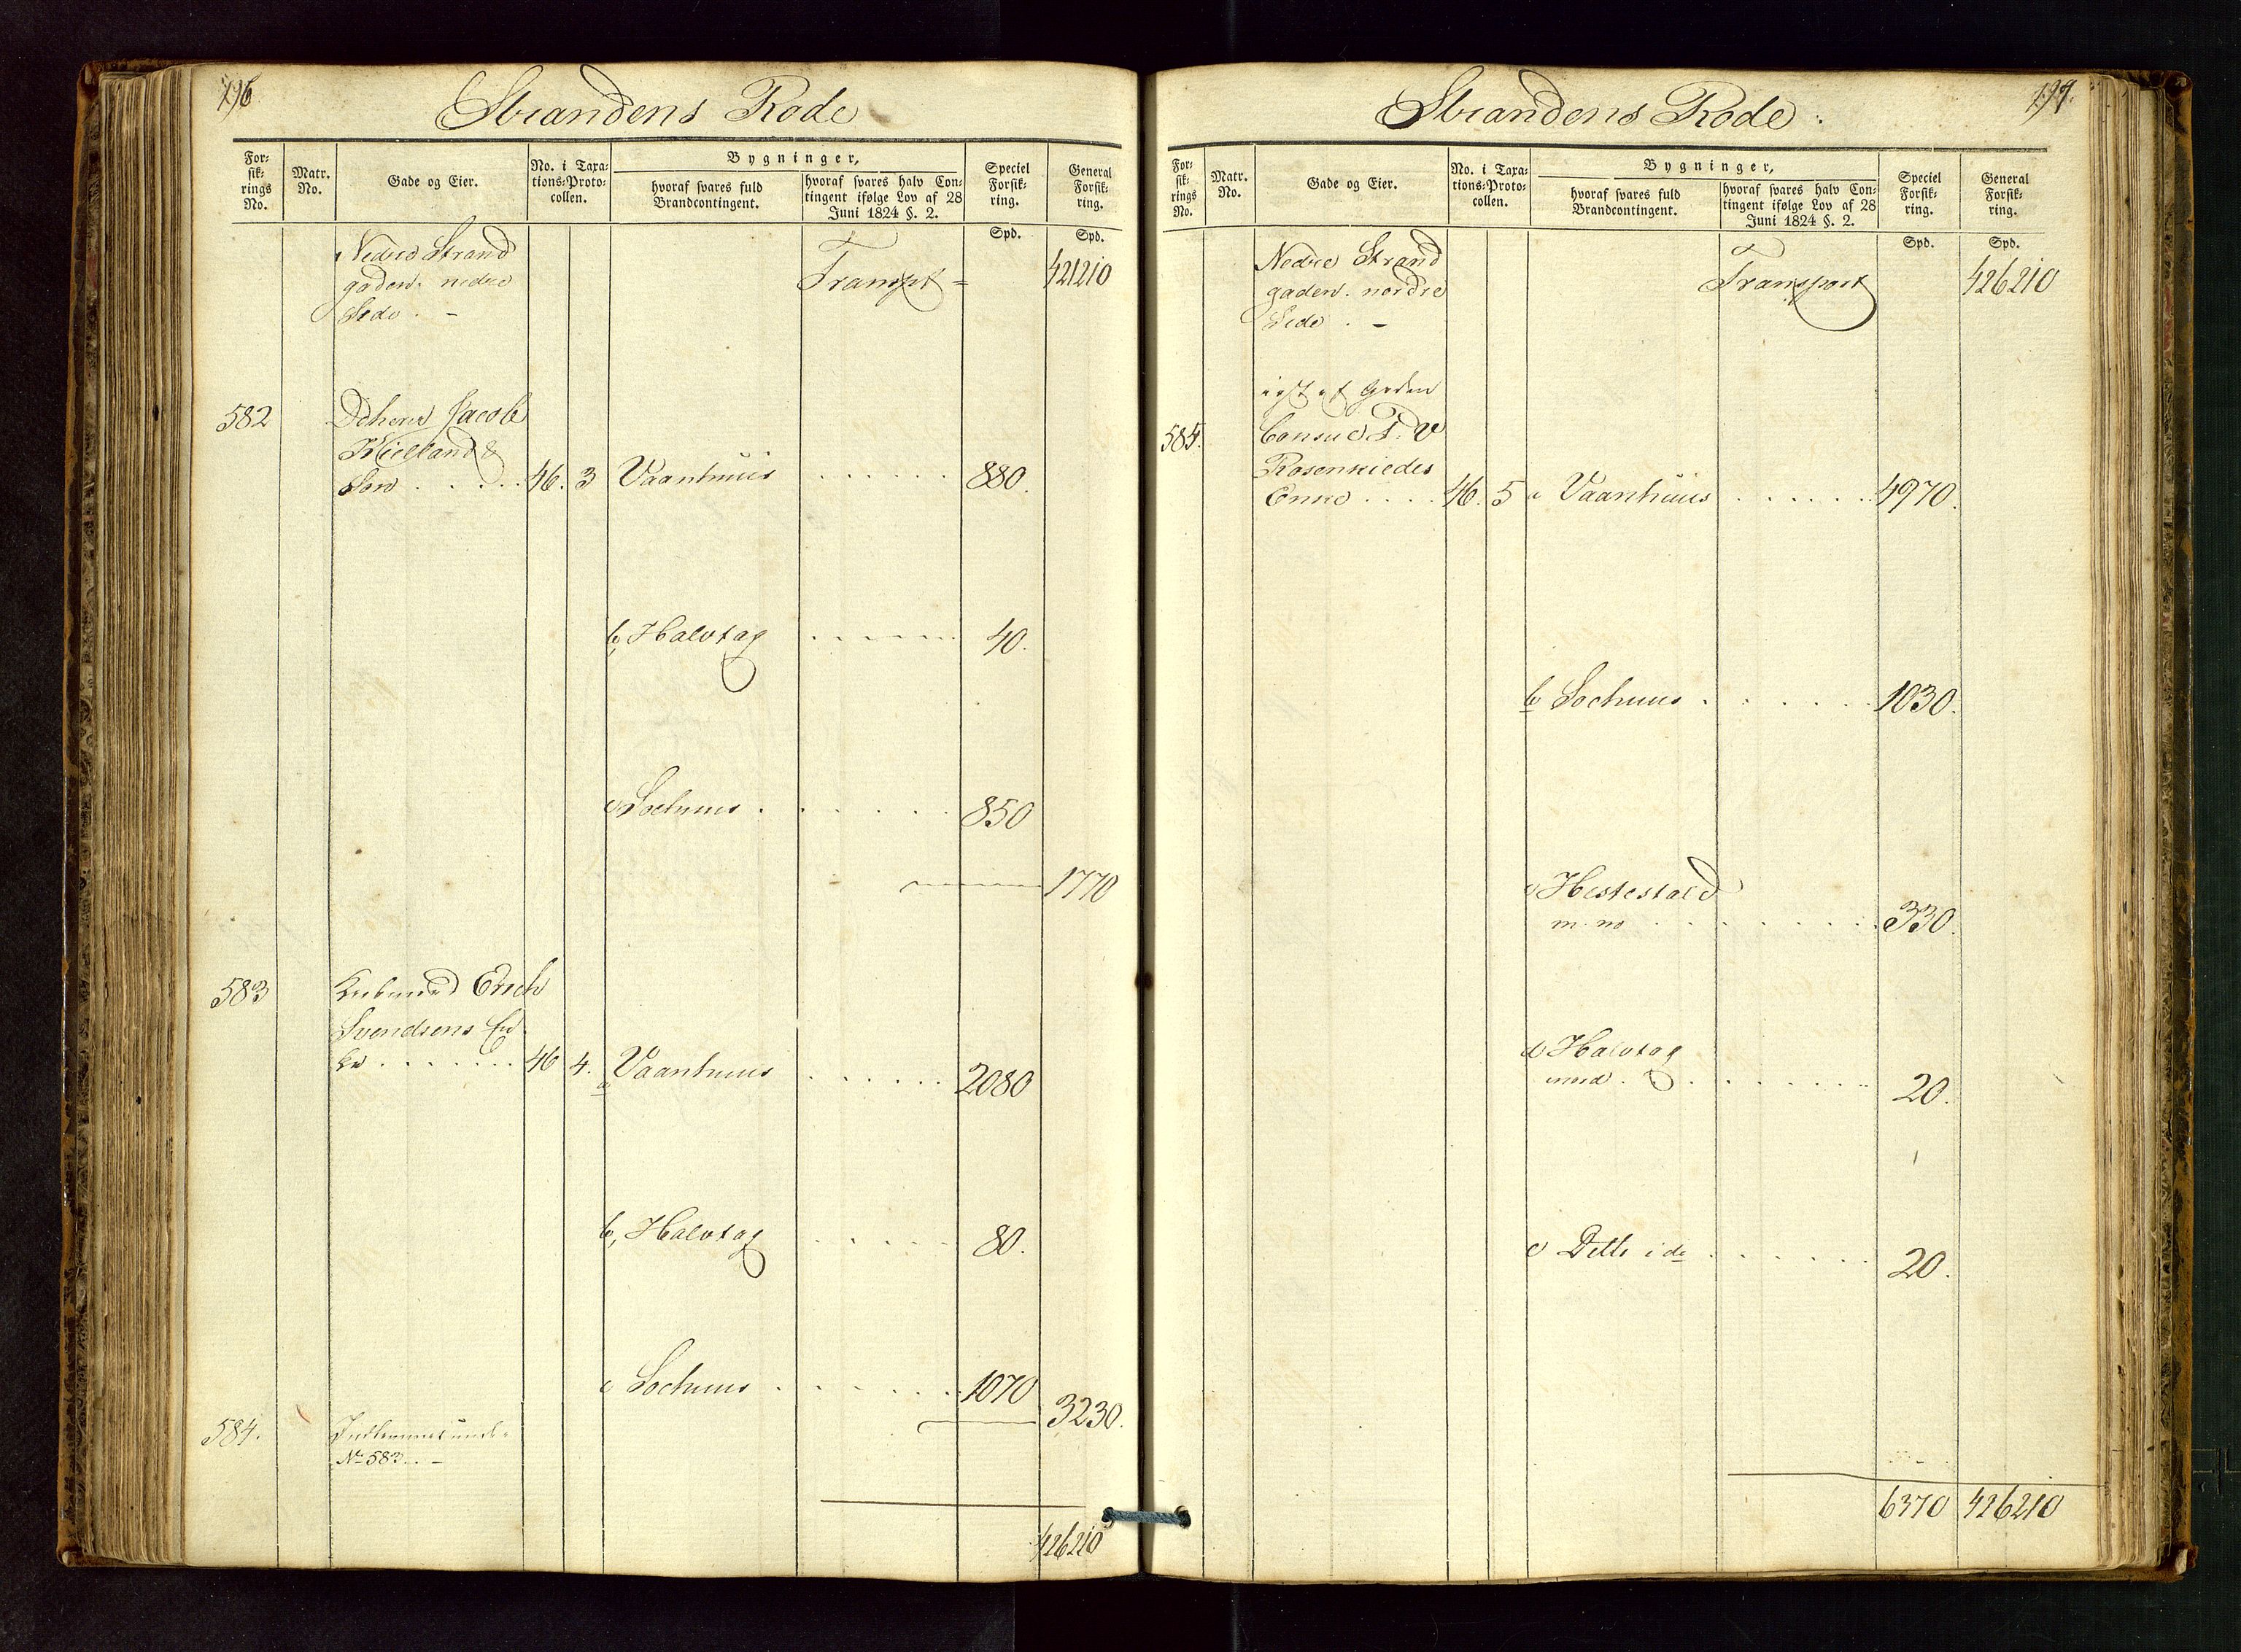 196
Strandens Rode
For-
sik-
rings
No.
Matr.
No.
Gade og Eier.
No. i Taxa-
tions-Proto-
collen.
Bygninger,
hvoraf svares fuld
Brandcontingent.
hvoraf svares halv Con-
tingent ifølge Lov af 28
Juni 1824 §. 2.
Speciel
Forsik-
ring.
General
Forsik-
ring.
Spd. Spd.
Nedre Strand
gaden. nedre Transpt = 421210
Side . -
582 Dhere Jacob
Kielland &
Søn . . . . . 46. 3 Vaanhuus . . . . . . 880.
b, Halvtag . . . . . . 40.
c Søehuus . . . . . . 850
1770
583 Erich
Svendsens En
ke . . . . . . . 46 4. a Vaanhuus . . . . . . 2080
b, Halvtag . . . . . 80.
c Søehuus . . . . . . 1070
3230.
584.
No 583. . -
426210
197.
Strandens Rode .
For-
sik-
rings
No.
Matr.
No.
Gade og Eier.
No. i Taxa-
tions-Proto-
collen.
Bygninger,
hvoraf svares fuld
Brandcontingent.
hvoraf svares halv Con-
tingent ifølge Lov af 28
Juni 1824 §. 2.
Speciel
Forsik-
ring.
General
Forsik-
ring.
Spd. Spd.
Nedre Strand
gaden. nordre Transport 426210
Side . -
af Gaden
585. Consul P. V
Rosenkildes
Enke . . . . 46. 5 a Vaanhuus . . . . . . 4970.
b Søehuus . . . . . . 1030.
c Hestestald
m. m . . . . . . . . 330.
d Halvtag
mod . . . . . . . . 20.
e Dette i do . . . . . . 20.
6370 426210